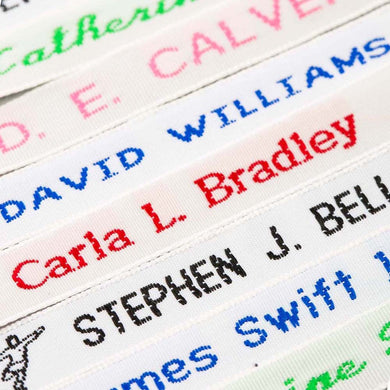 Catherin
D. E. CALVE
DAVID WILLIAMS
Carla L. Bradley
STEPHEN J. BELL
mes Swift